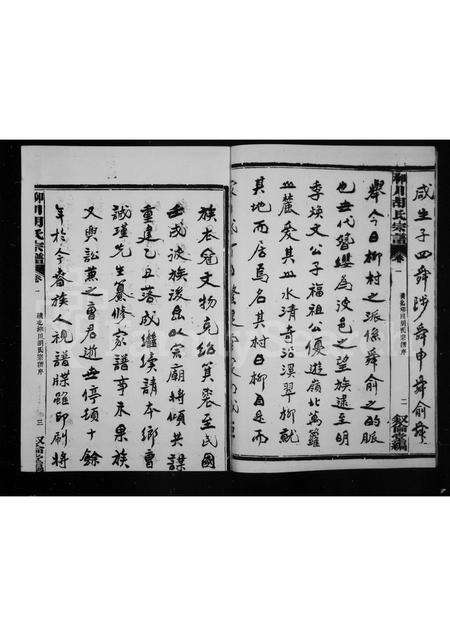 咸生子四舜陟舜申舜俞舜
舉今日柳村之派係舜俞之的脈
也世代簪纓為汶邑之望族逮至明
季煐文公子福祖公優遊嶺北萬籮
山麓愛其山水清奇沿溪翠柳就
其地而居焉名其村曰柳自是而
柳川胡氏宗譜 卷一 二 叙倫堂編
族衣冠文物克紹箕裘至民國
壬戌波族後昆以宗廟將傾共謀
重建乙丑落成繼續請本鄉曹
誠瑾先生纂修家譜事未果族
又與訟薰之曹君逝世停頓十餘
年於今春族人視譜牒雖印刷將
柳川胡氏宗譜 卷一 三 叙倫堂編